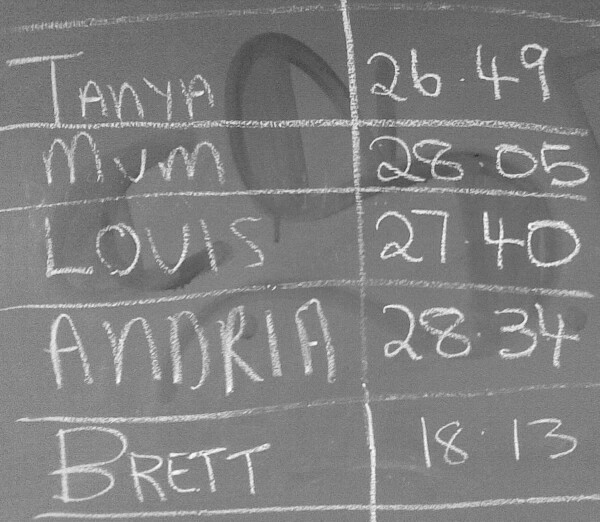 TANYA 26.49
MUM 28.05
LOUIS 27.40
ANDRIA 28.34
BRETT 18.13